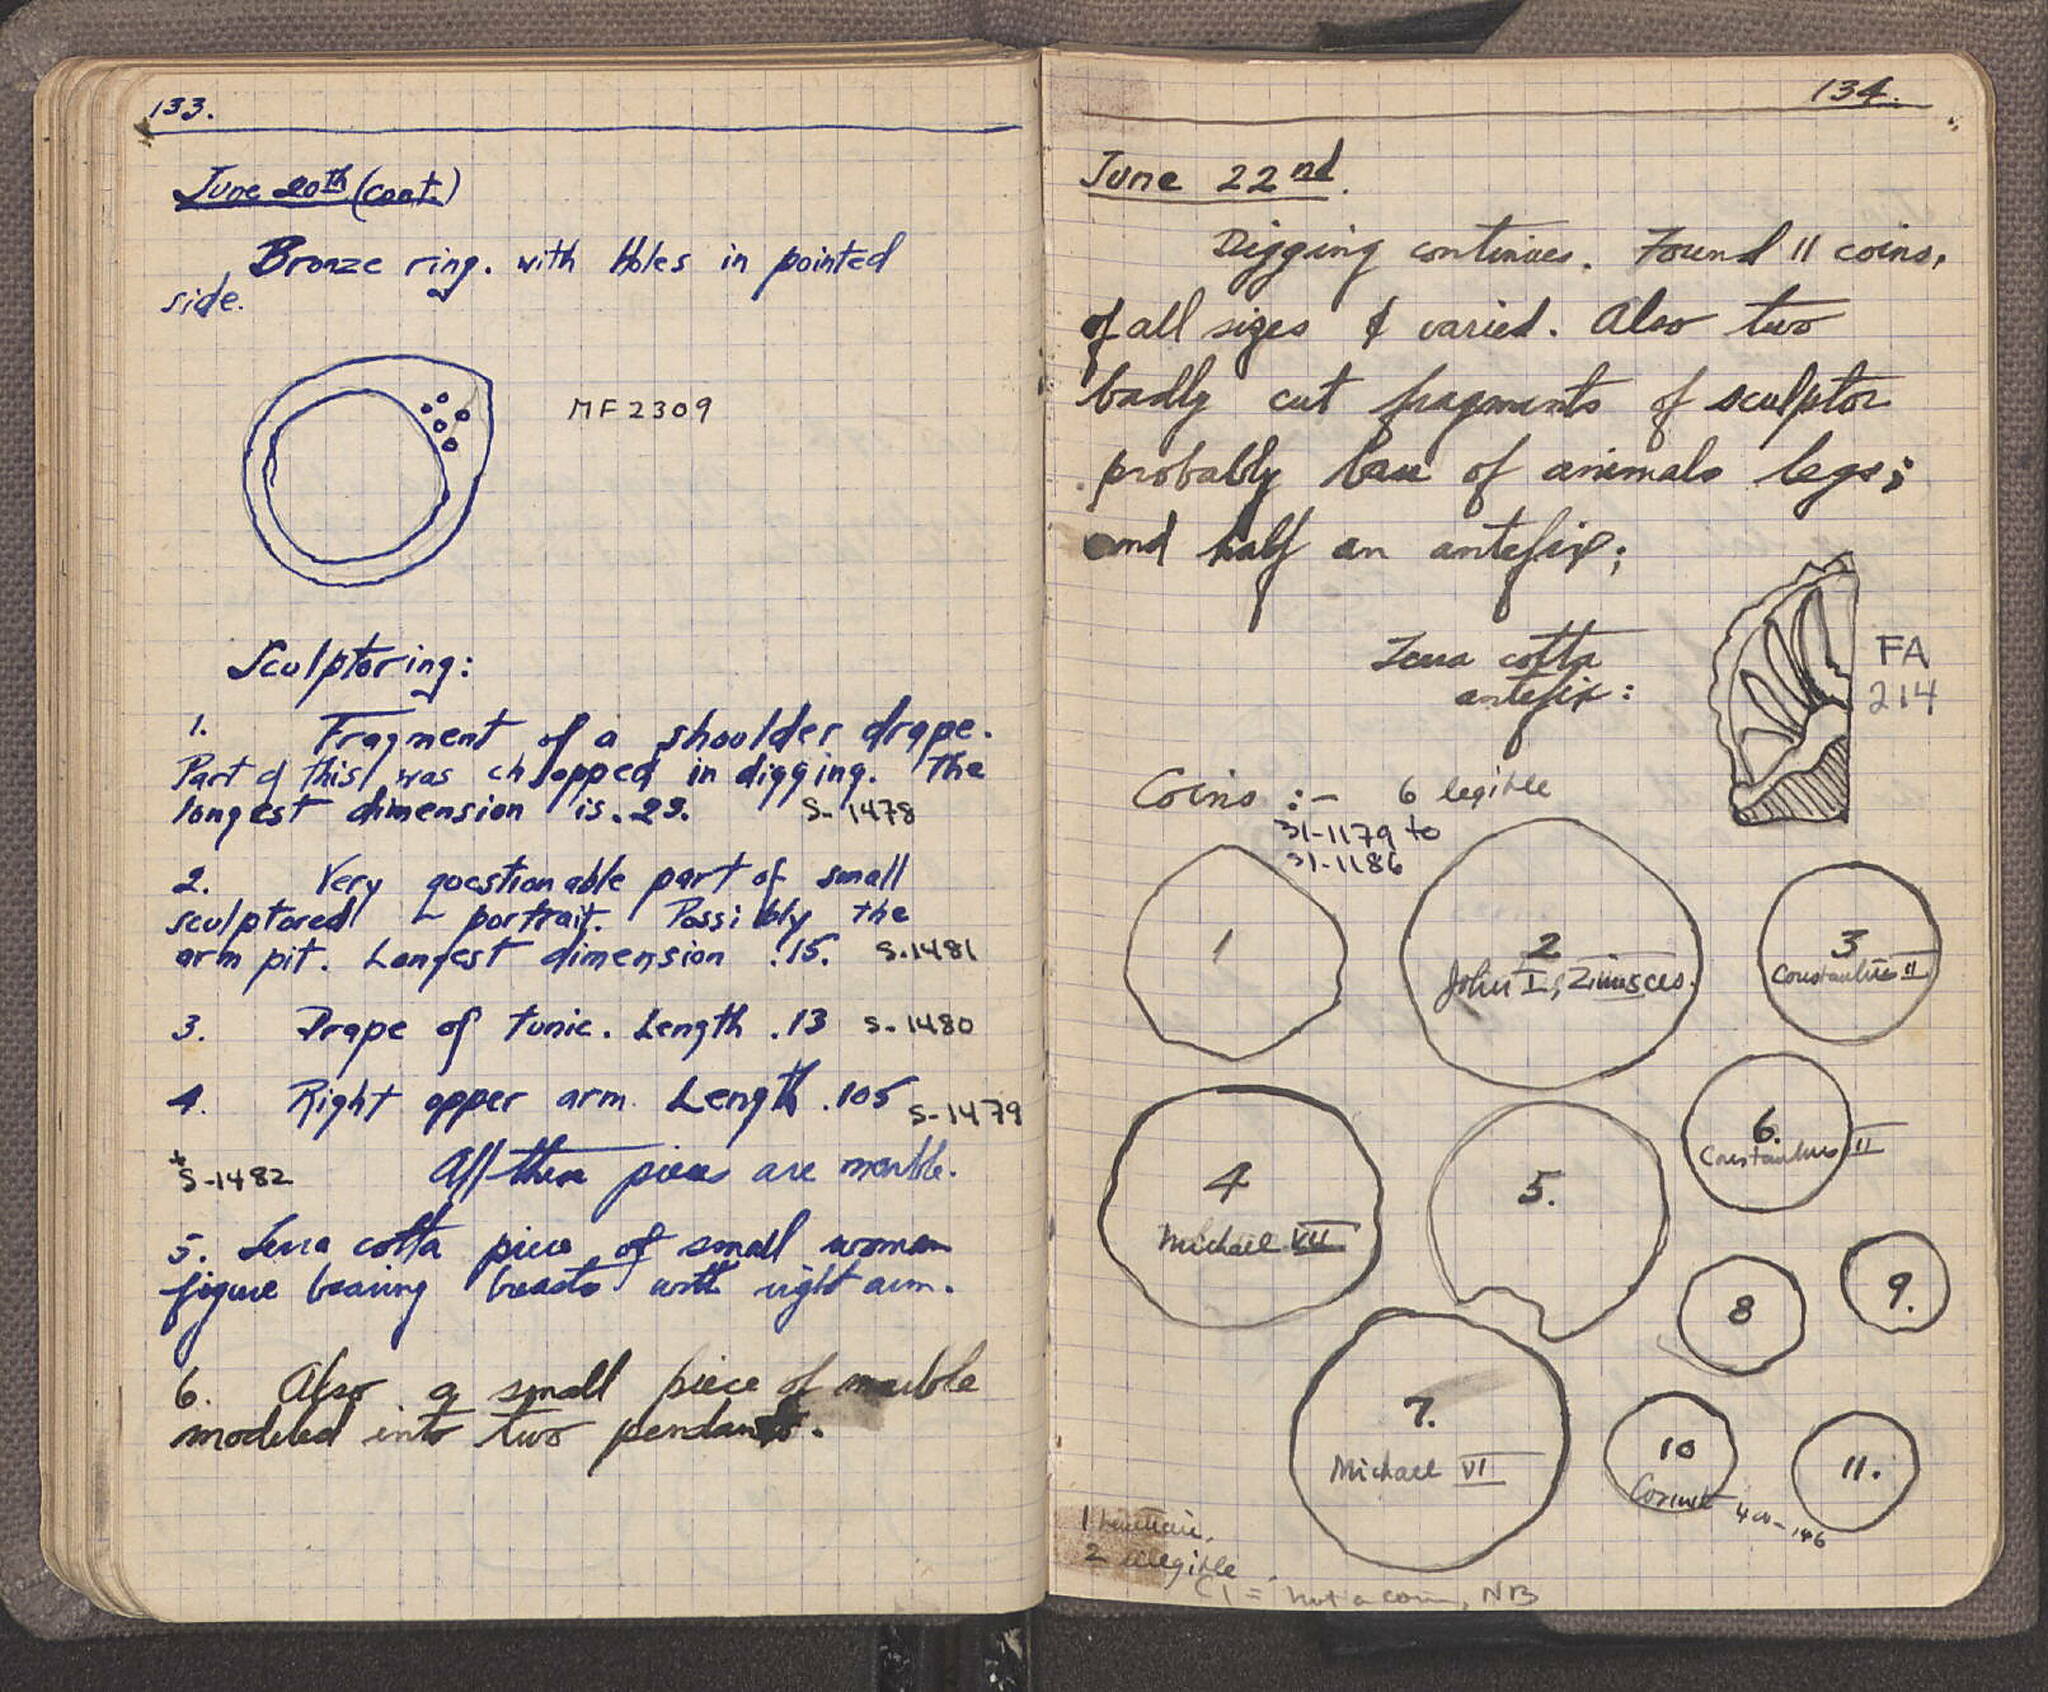 133.
June 20th (cont.)
Bronze ring. with Holes in pointed
side.
MF 2309
Sculptoring:
1. Fragment of a shoulder drape.
Part of this was chopped in digging. The
longest dimension is .22. S-1478
2. Very questionable part of small
sculptored portrait. Possibly the
arm pit. Longest dimension .15. S-1481
3. Drape of tunic. Length .13 S-1480
4. Right upper arm. Length .105 S-1479
All these pieces are marble.
+ S-1482
5. Terra cotta piece of small woman
figure bearing breasts with right arm.
6. Also a small piece of marble
modeled into two pendants.
134.
June 22nd.
Digging continues. Found 11 coins,
of all sizes & varied. Also two
badly cut fragments of sculptor
probably base of animals legs;
and half an antefix;
Terra cotta
antefix:
FA
214
Coins :- 6 legible
31-1179 to
31-1186
1
2
John I, Zimisces.
3
Constantius II
4
Michael VII
5.
6.
Constantius II
7.
Michael VI
8
9.
10
Corinth 400-146
11.
1
2 illegible
C1 = not a coin, NB